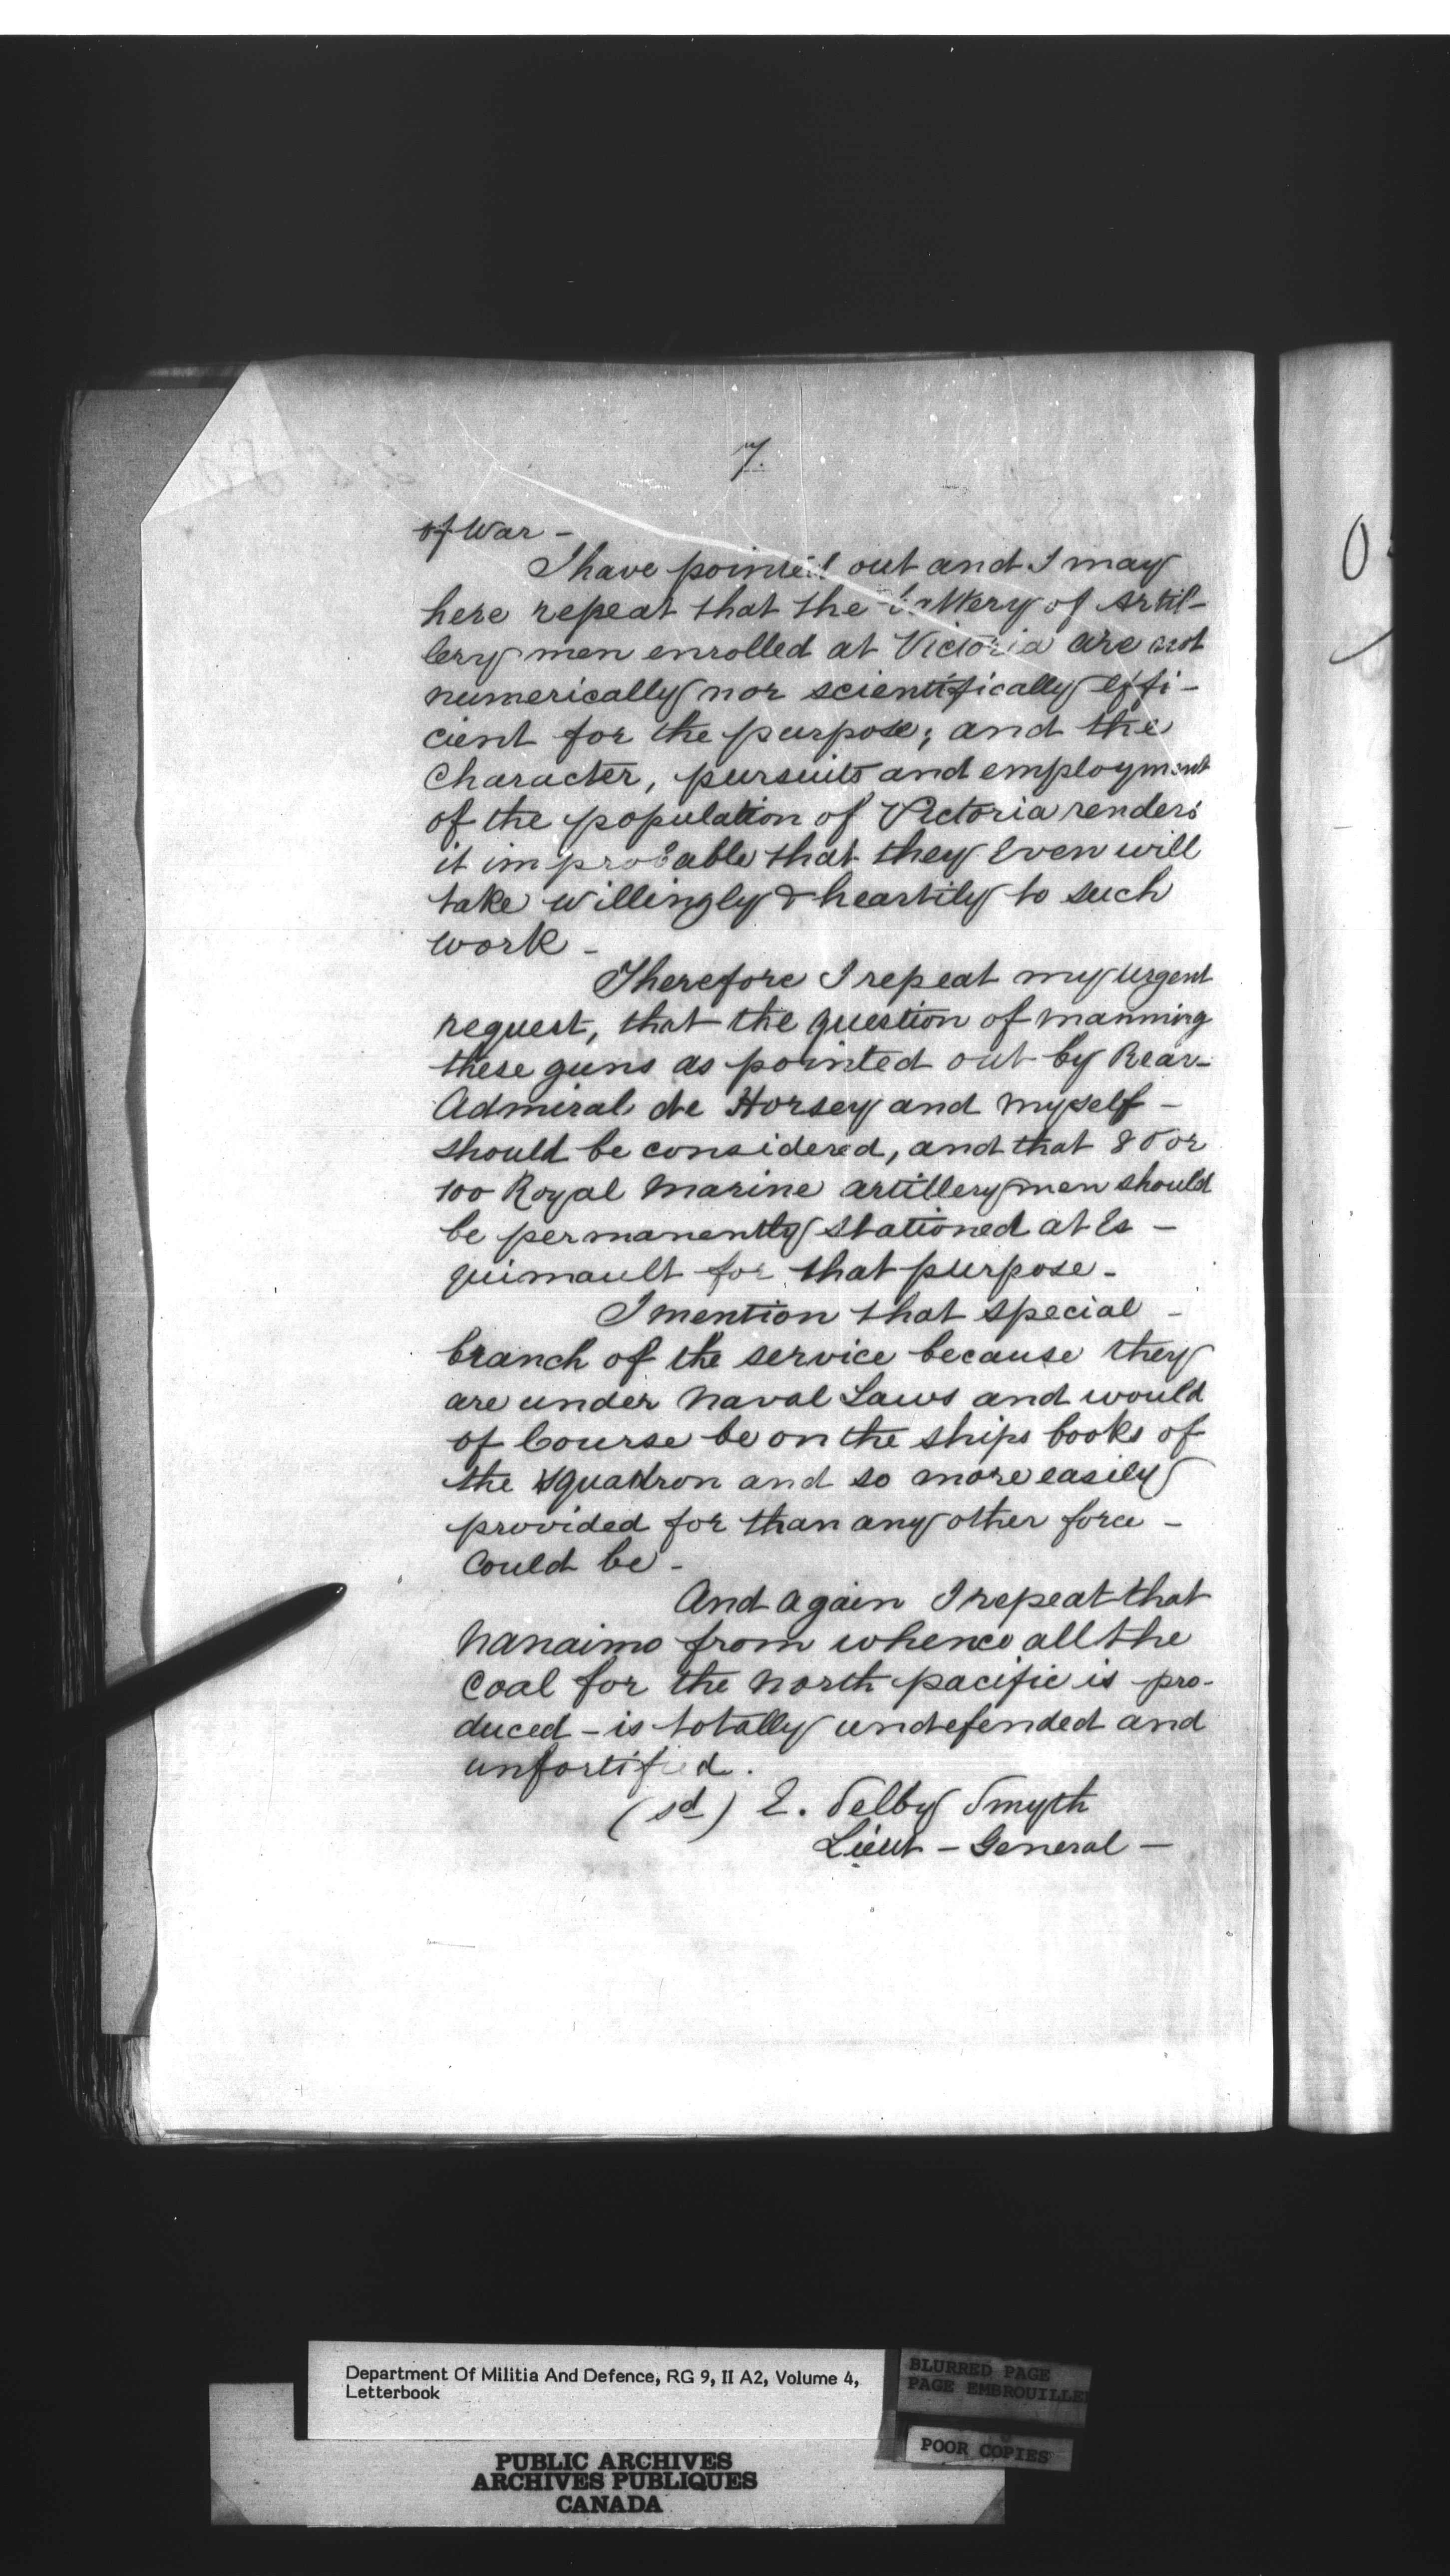 7.
of War -
I have pointed out and I may
here repeat that the battery of Artil-
lery men enrolled at Victoria are not
numerically nor scientifically effi-
cient for the purpose; and the
Character, pursuits and employment
of the population of Victoria renders
it improbable that they even will
take willingly & heartily to such
work -
Therefore I repeat my urgent
request, that the question of manning
these guns as pointed out by Rear-
Admiral de Horsey and myself -
should be considered, and that 80 or
100 Royal Marine artillery men should
be permanently stationed at Es -
quimault for that purpose -
I mention that special -
branch of the service because they
are under Naval Laws and would
of Course be on the ships books of
the squadron and so more easily
provided for than any other force -
Could be -
And again I repeat that
Nanaimo from whence all the
Coal for the North pacific is pro-
duced - is totally undefended and
unfortified.
(sd) E. Selby Smyth
Lieut - General -
Department Of Militia And Defence, RG 9, II A2, Volume 4,
Letterbook
BLURRED PAGE
PAGE EMBROUILLE
POOR COPIES
PUBLIC ARCHIVES
ARCHIVES PUBLIQUES
CANADA